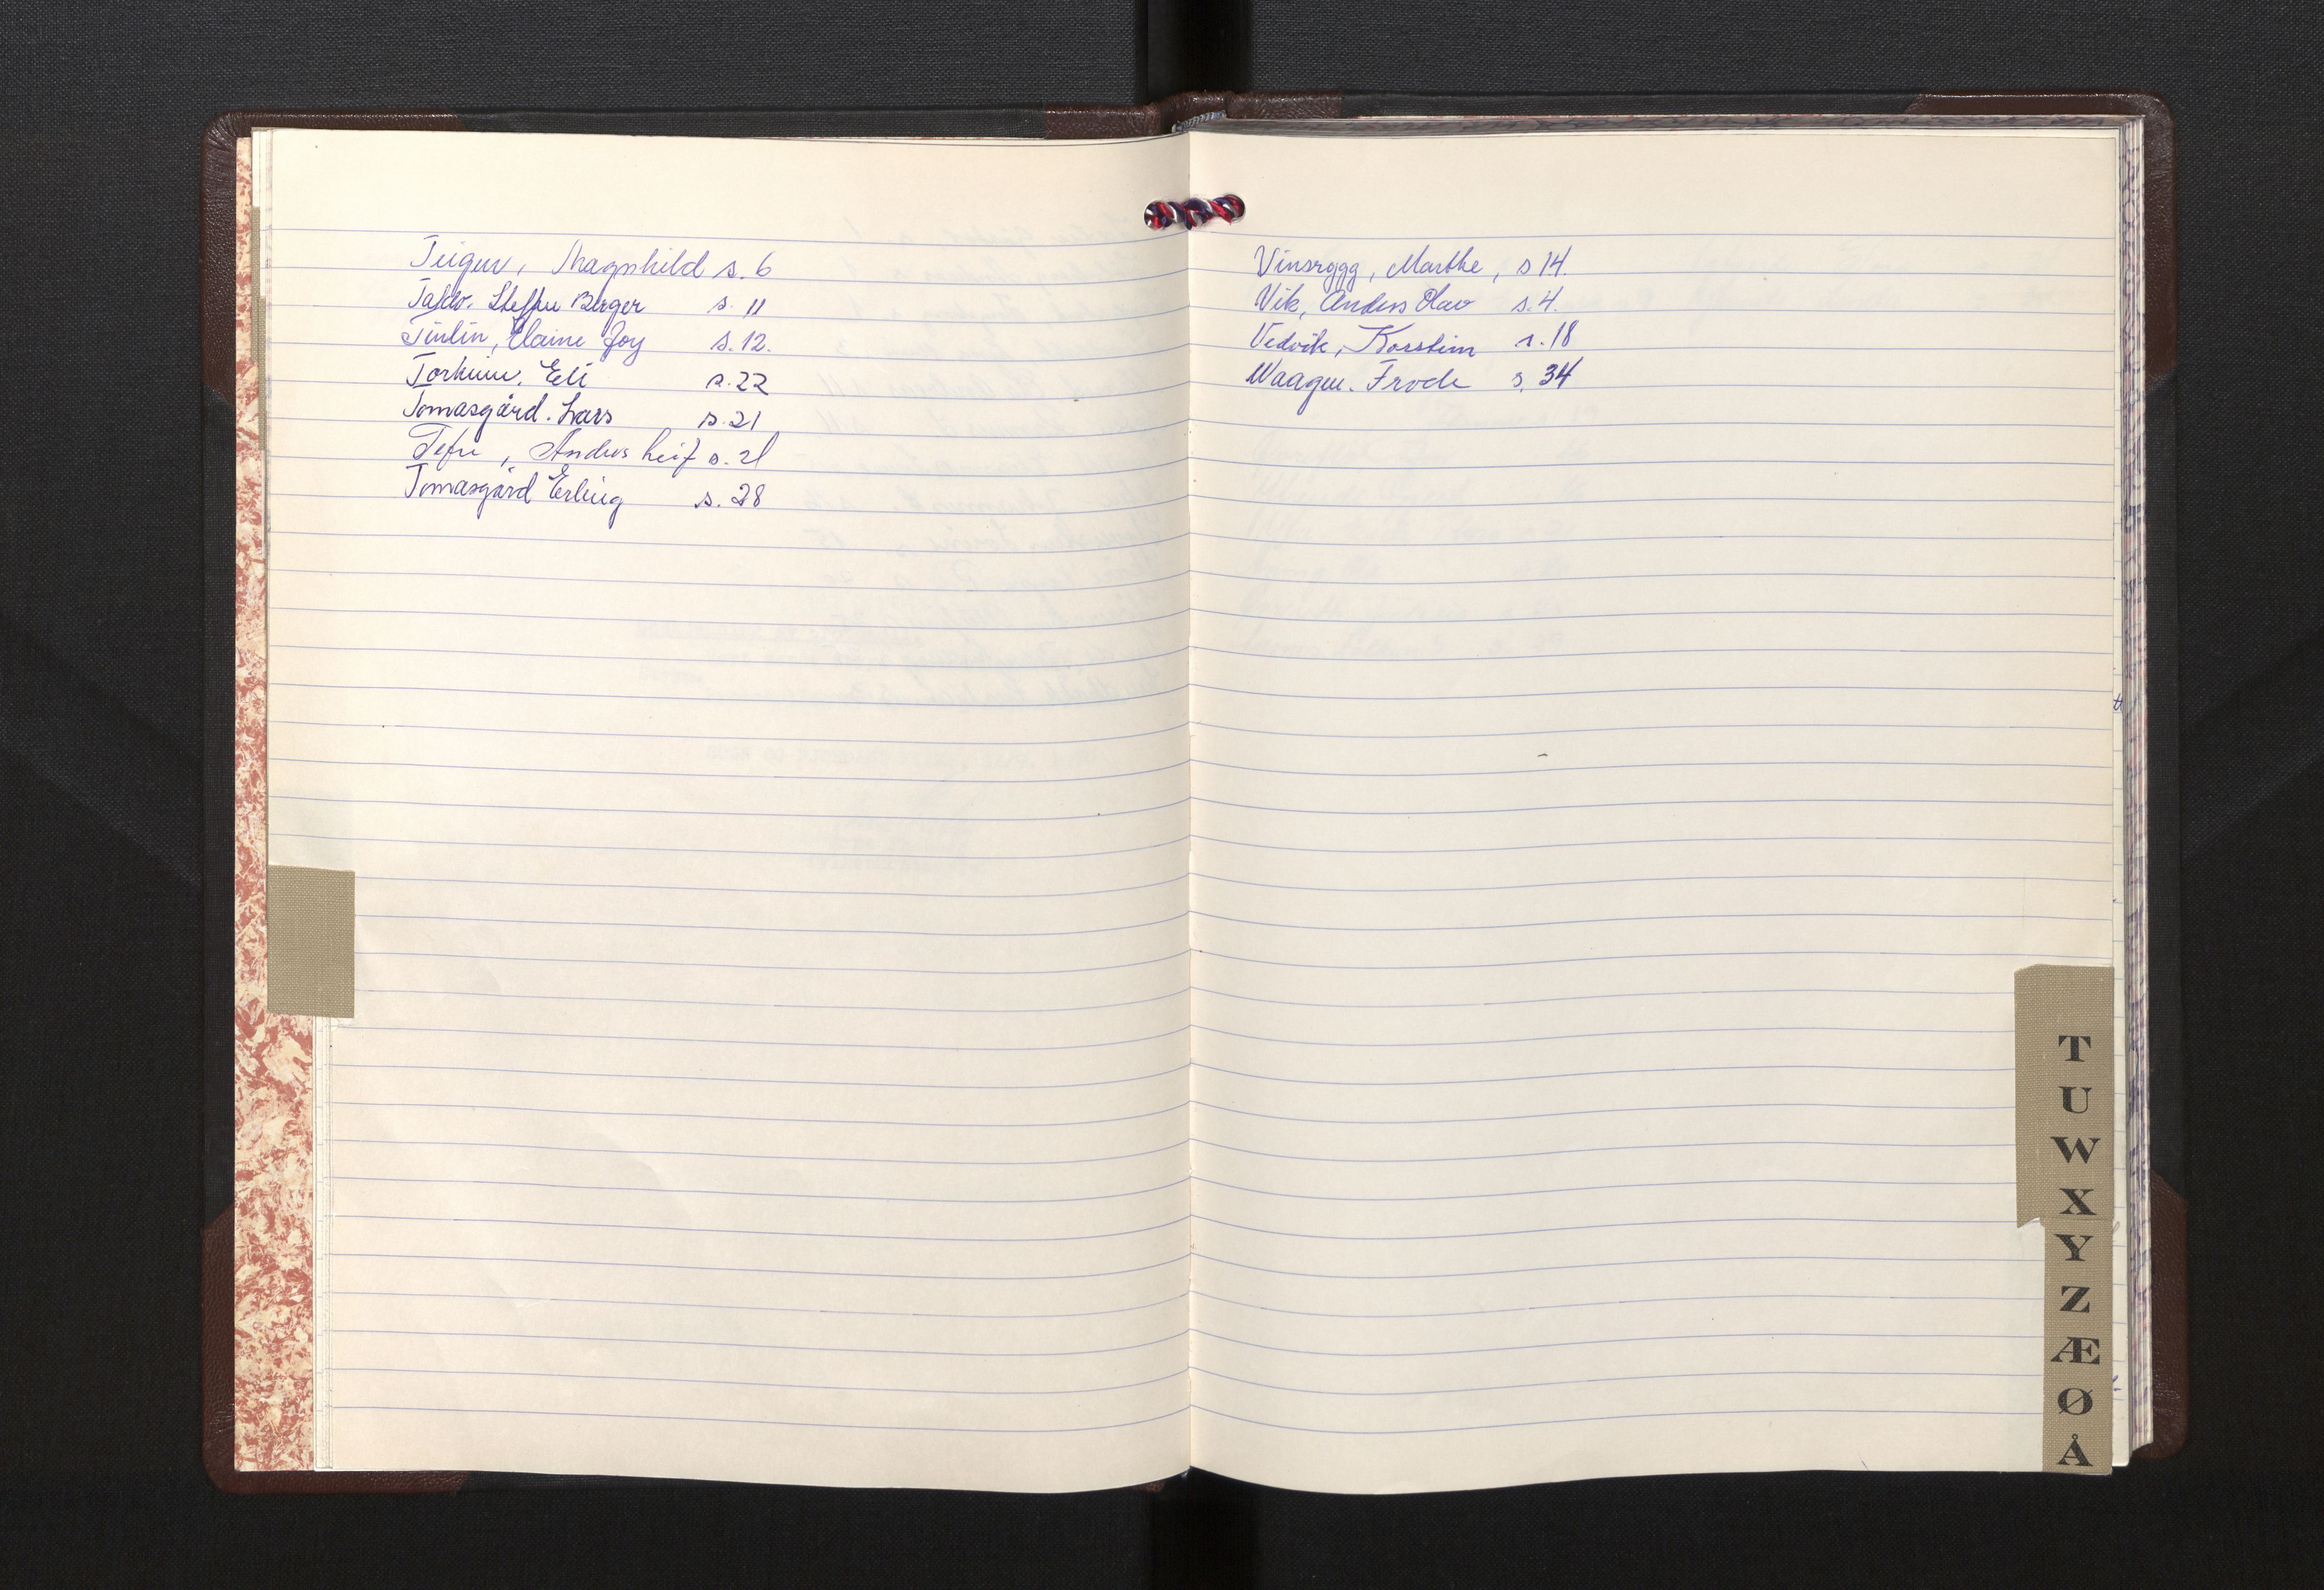 Teigen, Magnhild s. 6
Steffen Birger s. 11
Tinlin, Elaine Joy s. 12.
Torheim. Eli s. 22
Tomasgård. Lars s. 21
Anders Leif s. 21
Tomasgård Erling s. 28
Vinsrygg, Marthe, s 14.
Vik, Anders Olav s. 4.
Vedvik, Karstein s. 18
Waagen. Frode s. 34
T
U
W
X
Y
Z
Æ
Ø
Å